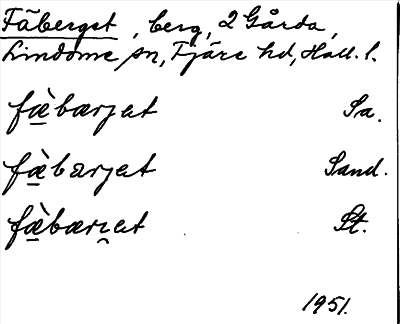 Fäberget, berg, 2 Gårda,
Lindome sn, Fjäre hd, Hall. l.
fæ̀bærjet Sa.
fæ̀bærjet Sand.
fæ̀bæri̯et St.
1951.